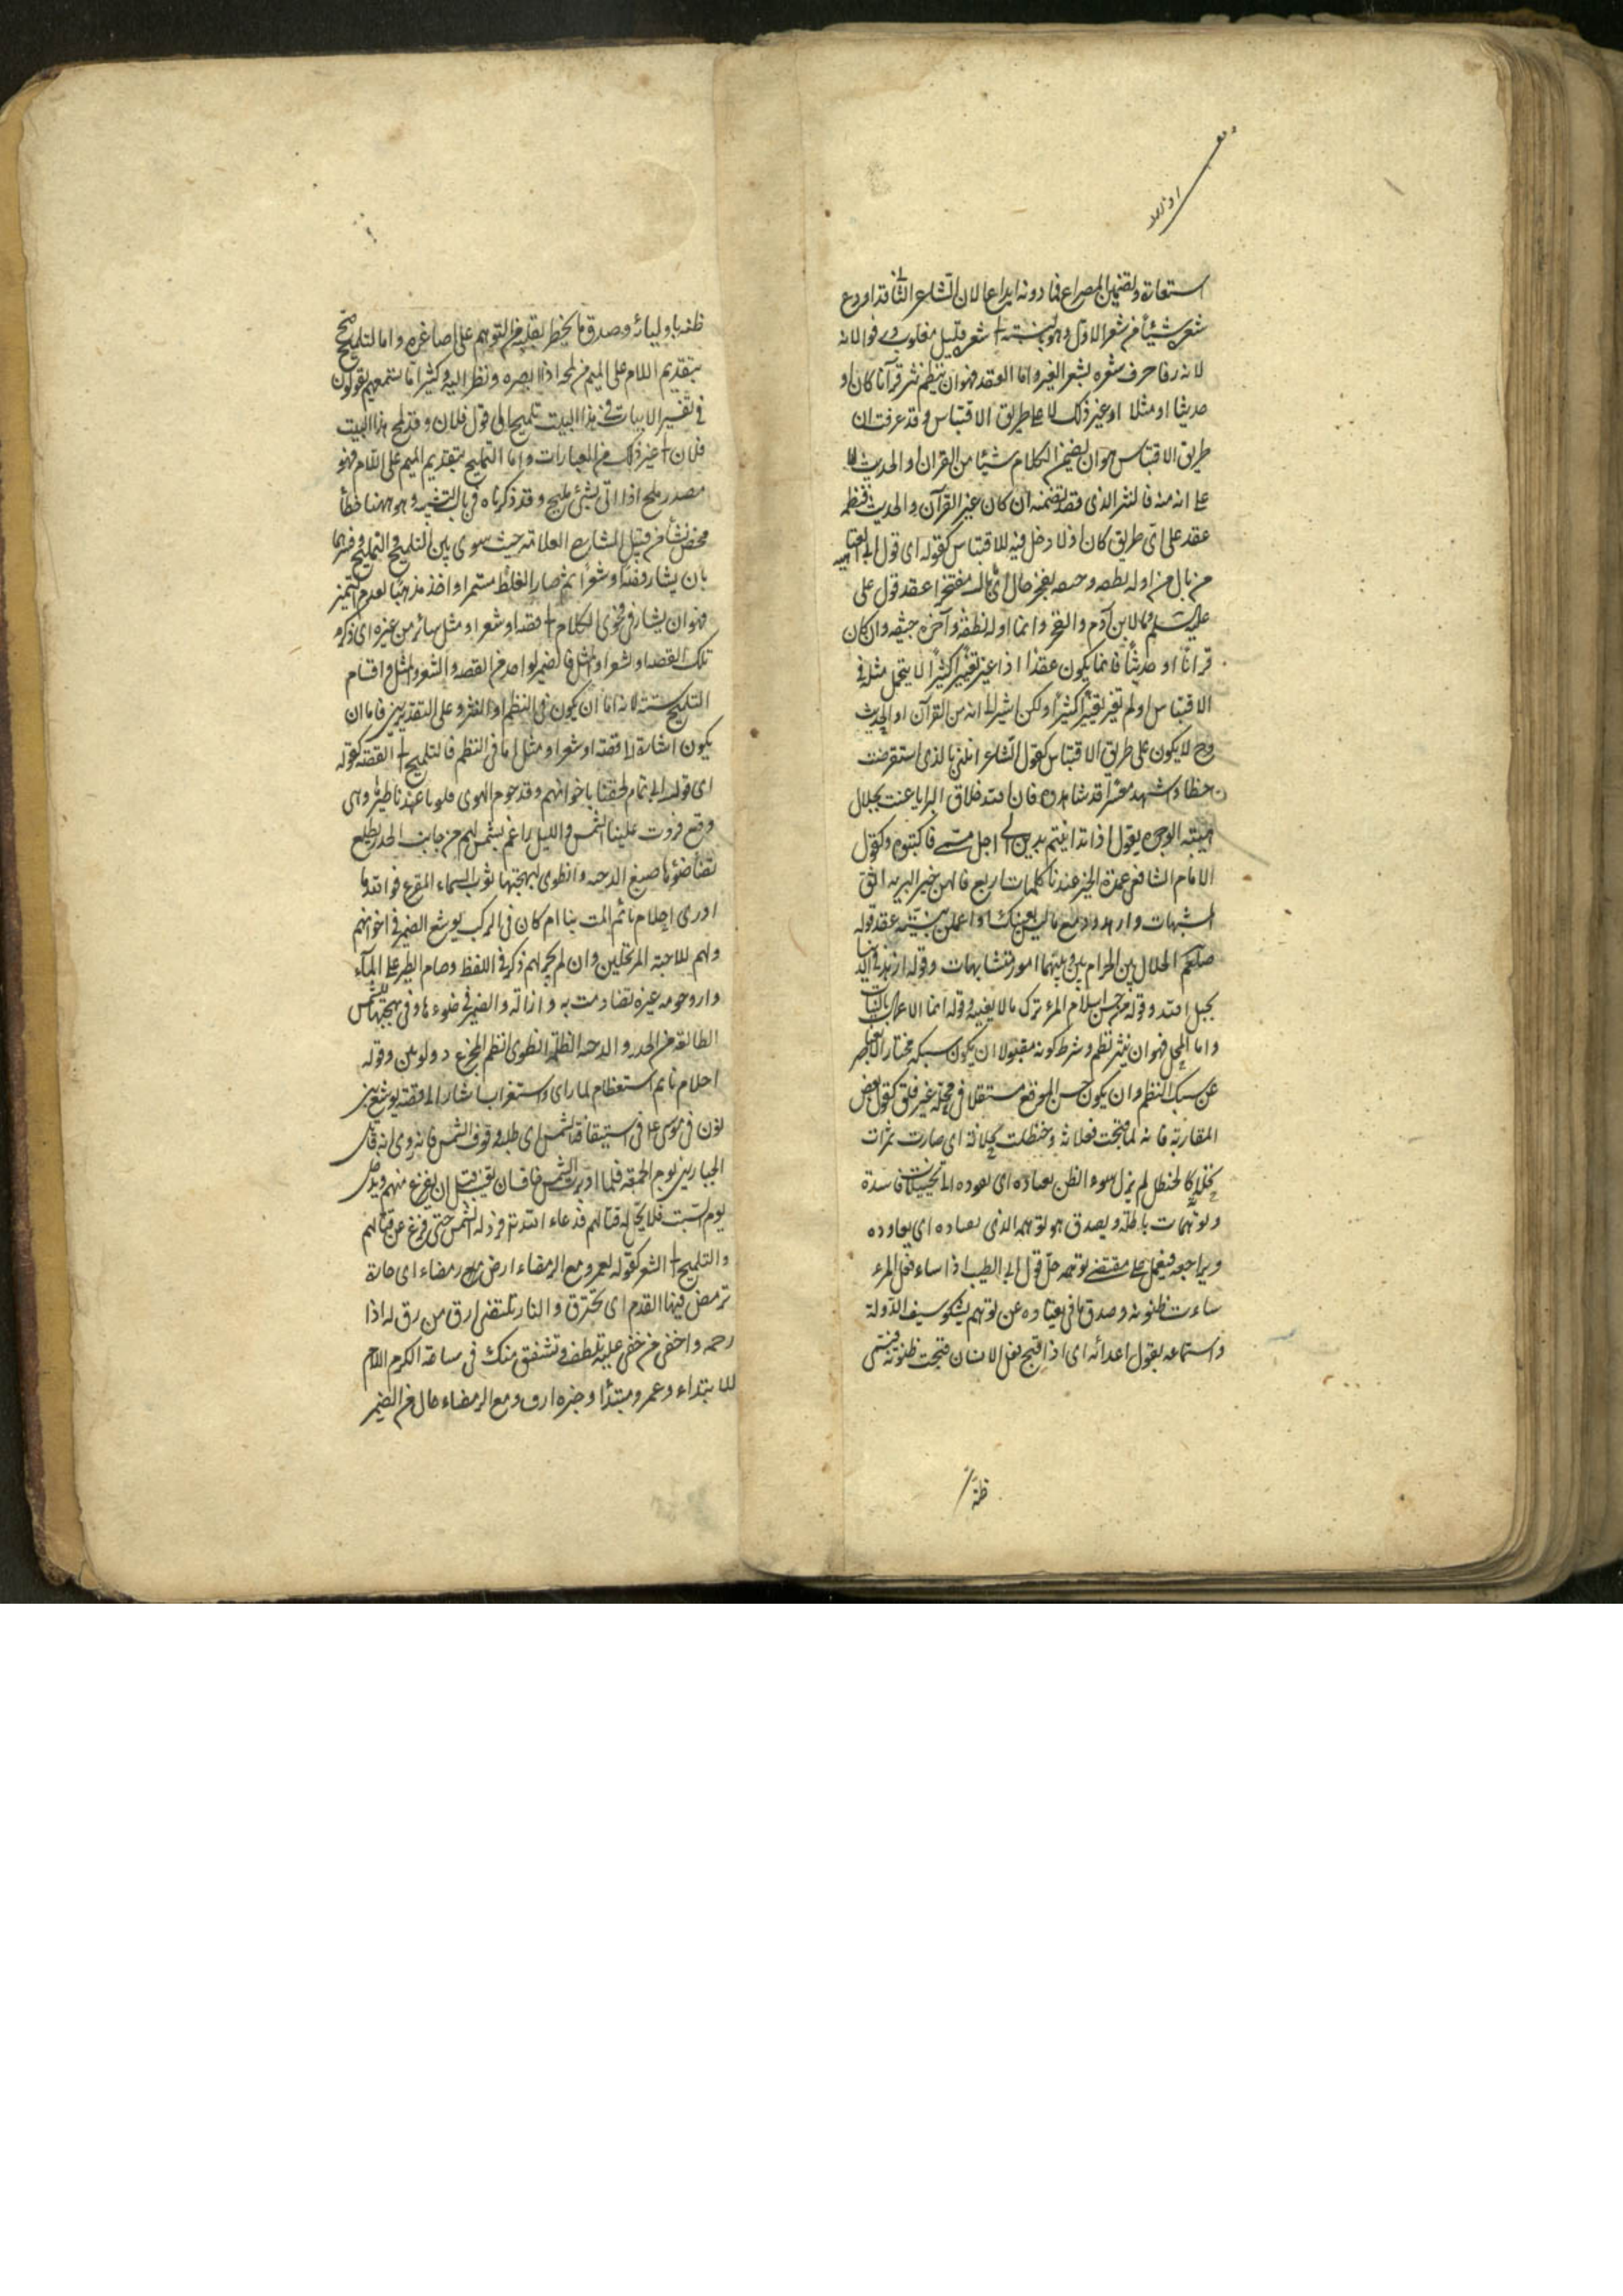 استعانة وتضمين المصراع فما دونه ايداعا لان الشاعر الثاني قد اودع
شعره شيئا من شعر الاول وهو بنسبته الى شعره قليل مغلوب ورفوا لانه
لانه رفا خرق شعره بشعر الغير واما العقد فهو ان ينظم نثر قرآنا كان او
حديثا او مثلا او غير ذلك لا على طريق الاقتباس وقد عرفت ان
طريق الاقتباس هو ان يضمن الكلام شيئا من القران او الحديث لا
على انه منه فالنثر الذي قصد نظمه ان كان غير القرآن والحديث فنظمه
عقد على اي طريق كان اذ لا دخل فيه للاقتباس كقوله اى قول ابى العتاهيه
من بال من اوله نطفه وجيفه يفخر حال اى ماباله مفتخرا عقد قول على
عليه السلم وما لابن آدم والفخر وانما اوله نطفة وآخره جيفه وان كان
قرانا او حديثا فانما يكون عقدا اذا غير تغييرا كثيرا لا يتحمل مثله فى
الاقتباس او لم تغير تغييرا كثيرا ولكن اشير الى انه من القرآن او الحديث
وح لا يكون على طريق الاقتباس كقول الشاعر انلنى بالذى استقرضت
خطا واشهد معشرا قد شاهدوه فان الله خلاق البرايا عنت بجلال
هيبته الوجوه يقول اذا تداينتم بدين الى اجل مسمى فاكتبوه وكقول
الامام الشافعى عمدة الخير عندنا كلمات اربع قالهن خير البريه اتق
الشبهات وازهد ودع ما ليس يعنيك واعملن بنيته عقد قوله
صلعم الحلال بين والحرام بين وبينهما امور متشابهات وقوله ازهد فى الدنيا
يحبك الله وقوله من حسن اسلام المرء تركه ما لا يعنيه وقوله انما الاعمال بالنيات
واما الحل فهو ان ينثر نظم وشرط كونه مقبولا ان يكون سبكه مختارا لا يتقاصر
عن سبك النظم وان يكون حسن الموقع مستقرا فى محله غير قلق كقول بعض
المغاربة فانه لما قبحت فعلاته وحنظلت نخلاته اى صارت ثمرات
نخلاته كالحنظل لم يزل سوء الظن يقتاده اى يقوده الى تخييلات فاسدة
وتوهمات باطلة ويصدق هو توهمه الذى يعتاده اى يعاوده
ويراجعه فيعمل على مقتضى توهمه حل قول ابى الطيب اذا ساء فعل المرء
ساءت ظنونه وصدق ما يعتاده من توهم يشكو سيف الدولة
واستماعه بقول اعدائه اى اذا قبح فعل الانسان قبحت ظنونه فيسئ
ظنه
ظنه باوليائه وصدق ما يخطر بقلبه من التوهم على اصاغره واما التلميح صح
بتقديم اللام على الميم من لمحه اذا ابصره ونظر اليه وكثيرا ما تسمعهم يقولون
فى تفسير الابيات فى هذا البيت تلميح الى قول فلان وقد لمح هذا البيت
فلان الى غير ذلك من العبارات واما التمليح بتقديم الميم على اللام فهو
مصدر ملح اذا اتى بشئ مليح وقد ذكرناه فى باب التشبيه وهو ههنا خطأ
محض نشأ من قبل الشارح العلامة حيث سوى بين التلميح والتمليح وفسرهما
بان يشار الى قصة او شعر ثم صار الغلط مستمرا واخذ مذهبا لعدم التمييز
فهو ان يشار فى فحوى الكلام الى قصة او شعر او مثل سائر من غير ذكره اى ذكر
تلك القصة او الشعر او المثل فالضمير لواحد من القصه والشعر والمثل واقسام
التلميح ستة لانه اما ان يكون فى النظم او النثر وعلى التقديرين فاما ان
يكون اشارة الى قصة او شعر او مثل اما فى النظم فالتلميح الى القصة كقوله
اى قول ابى تمام لحقنا باخراهم وقد حوم الهوى قلوبا عهدنا طيرها وهى
وقع فردت علينا الشمس والليل راغم بشمس لهم من جانب الخدر تطلع
نضا ضوءها صبغ الدجنه وانطوى لبهجتها ثوب السماء المجزع فوالله ما
ادرى احلام نائم المت بنا ام كان فى الركب يوشع الضمير فى اخراهم
ولهم للاحبة المرتحلين وان لم يجر لهم ذكر فى اللفظ وحام الطير على الماء
دار وحومه غيره نضا ذهب به وازاله والضمير فى ضوءها وفى بهجتها للشمس
الطالعة من الخدر والدجنه الظلمة انطوى انضم المجزع ذو لونين وقوله
احلام نائم استعظام لما راى واستغراب اشار الى قصة يوشع بن
نون فتى موسى على فى استيقافه الشمس اى طلبه وقوف الشمس فانه روى انه قاتل
الجبارين يوم الجمعة فلما ادبرت الشمس خاف ان تغيب قبل ان يفرغ منهم ويدخل
يوم السبت فلا يحل له قتالهم فدعاء الله تع فرد له الشمس حتى فرغ من قتالهم
والتلميح الى الشعر كقوله لعمرو مع الرمضاء ارض رمضاء اى حارة
ترمض فيها القدم اى تحترق والنار تلتظى ارق من رق له اذا
رحمه واحفى من حفى عليه تلطف وتشفق منك فى ساعة الكرب اللام
للابتداء وعمرو مبتدأ وخبره ارق ومع الرمضاء حال من الضمير